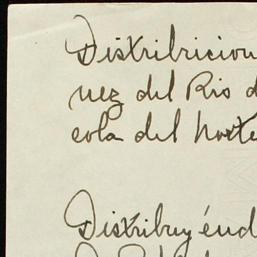 Distribricion
nez del Rio d
cola del norte
Distribuyénd